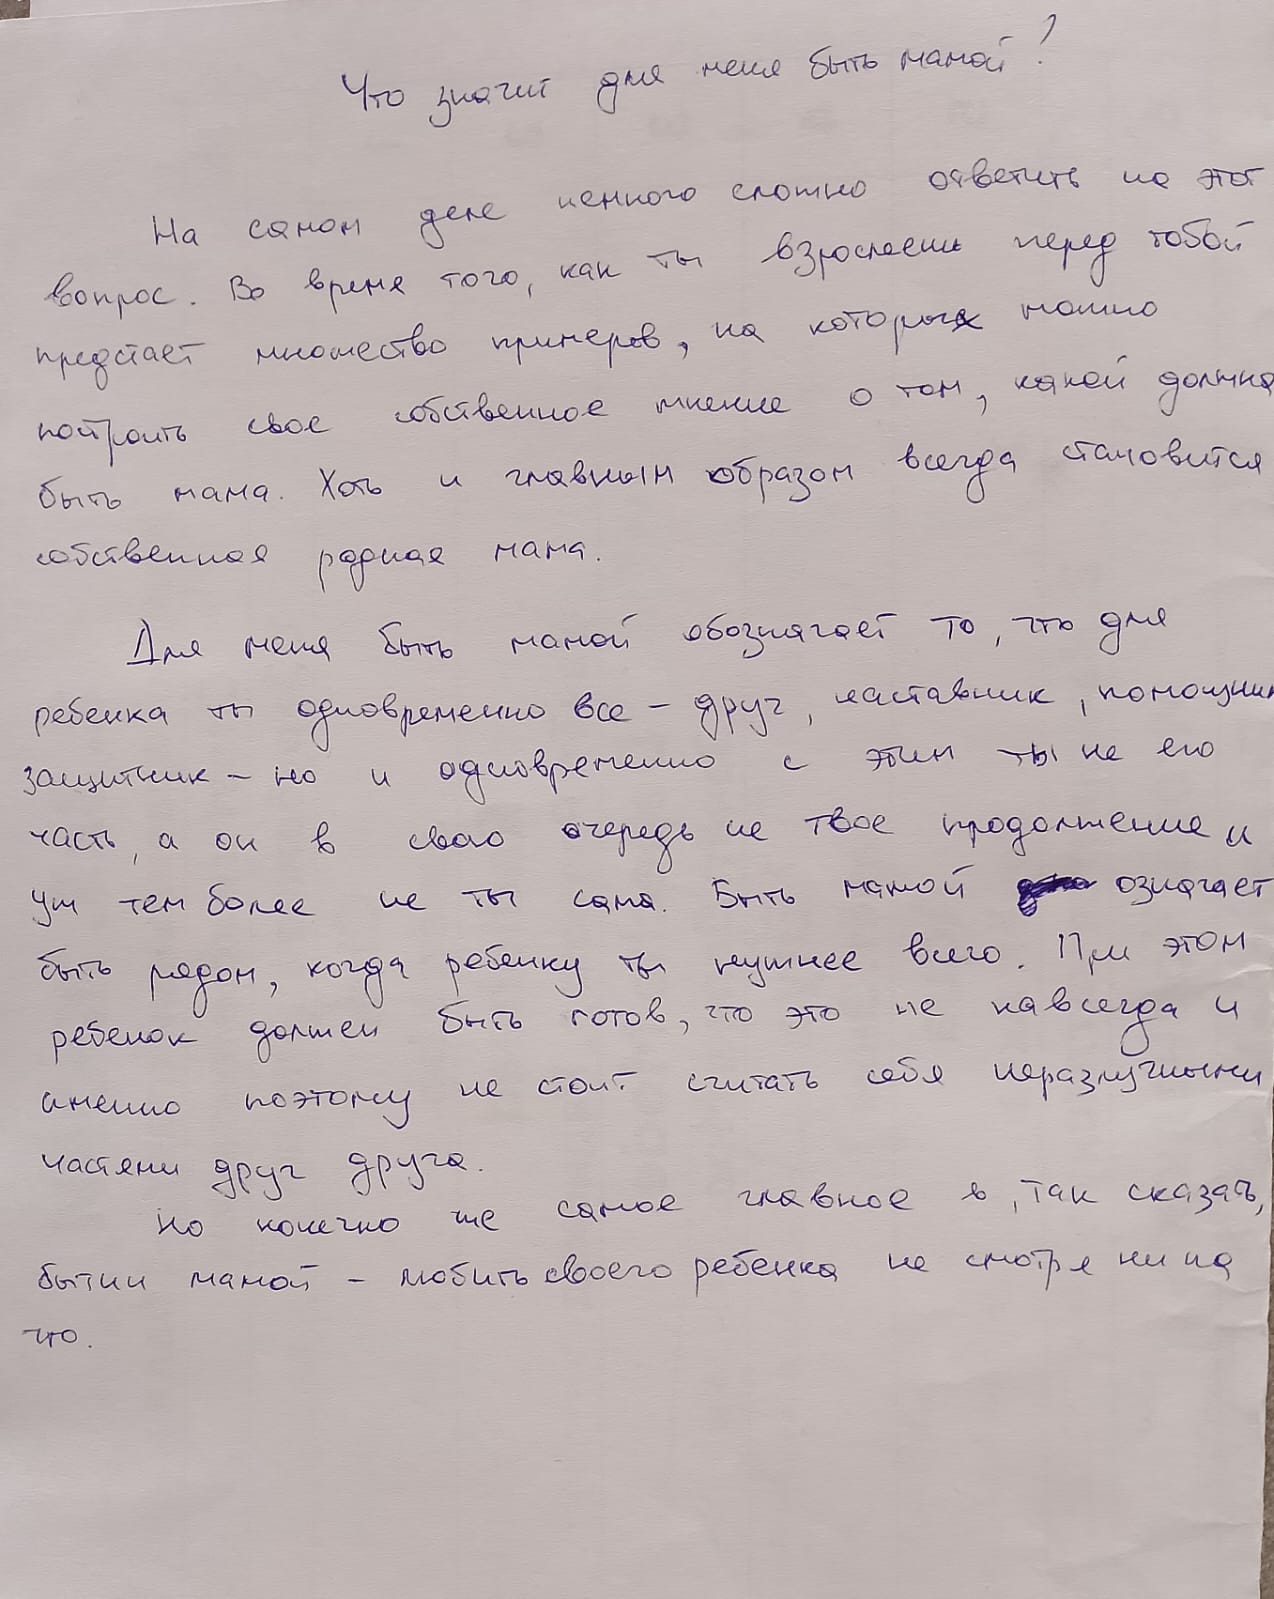 Что значит для меня быть мамой?
На самом деле немного сложно ответить на этот
вопрос. Во время того, как ты взрослеешь перед тобой
предстает множество примеров, на которых можно
построить свое собственное мнение о том, какой должна
быть мама. Хоть и главным образом всегда становится
собственная родная мама.
Для меня быть мамой обозначает то, что для
ребенка ты одновременно все – друг, наставник, помощник
защитник – но и одновременно с этим ты не его
часть, а он в свою очередь не твое продолжение и
уж тем более не ты сама. Быть мамой означает
быть рядом, когда ребенку ты нужнее всего. При этом
ребенок должен быть готов, что это не навсегда и
именно поэтому не стоит считать себя неразлучными
частями друг друга.
Но конечно же самое главное в, так сказать,
бытии мамой – любить своего ребенка не смотря ни на
что.